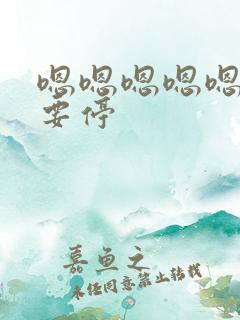 嗯嗯嗯嗯嗯
要停
嘉鱼之
未经同意禁止转载